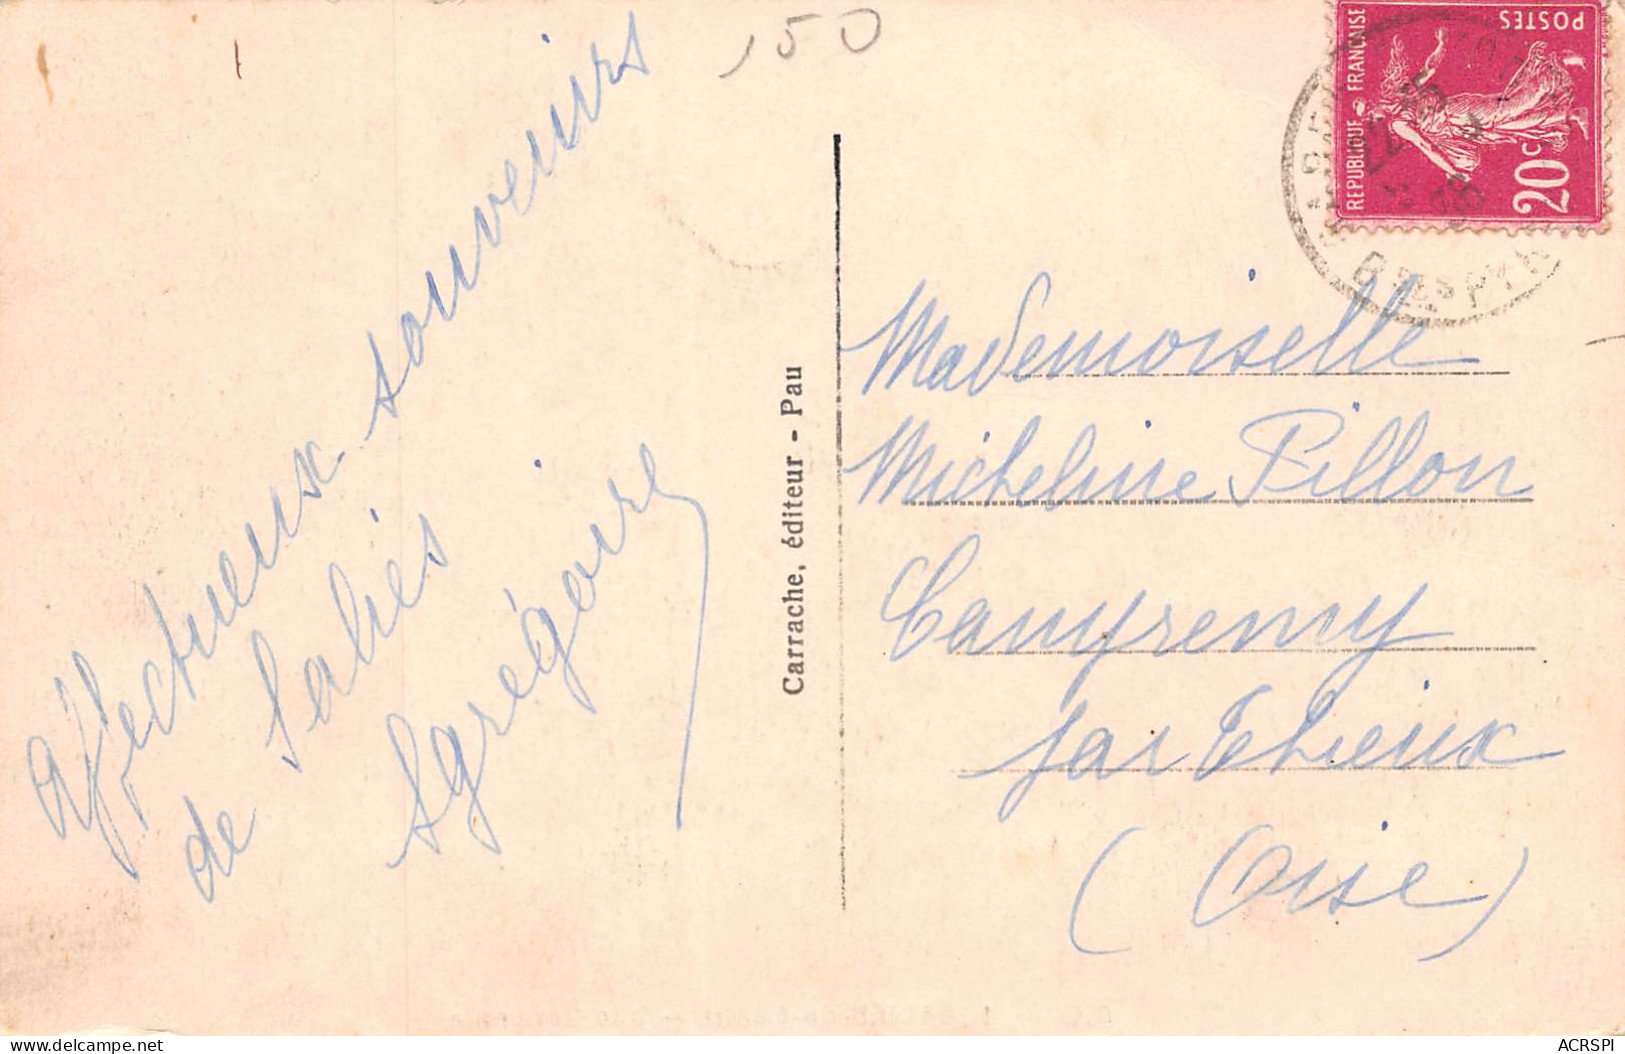 150
Affectueux souvenirs
de Salies
Sgrégoire
Carrache, éditeur - Pau
REPUBLIQUE FRANCAISE
POSTES
20c
Bses PYR
Mademoiselle
Micheline Pillon
Campremy
par Thieux
(Oise)
ACRSPI